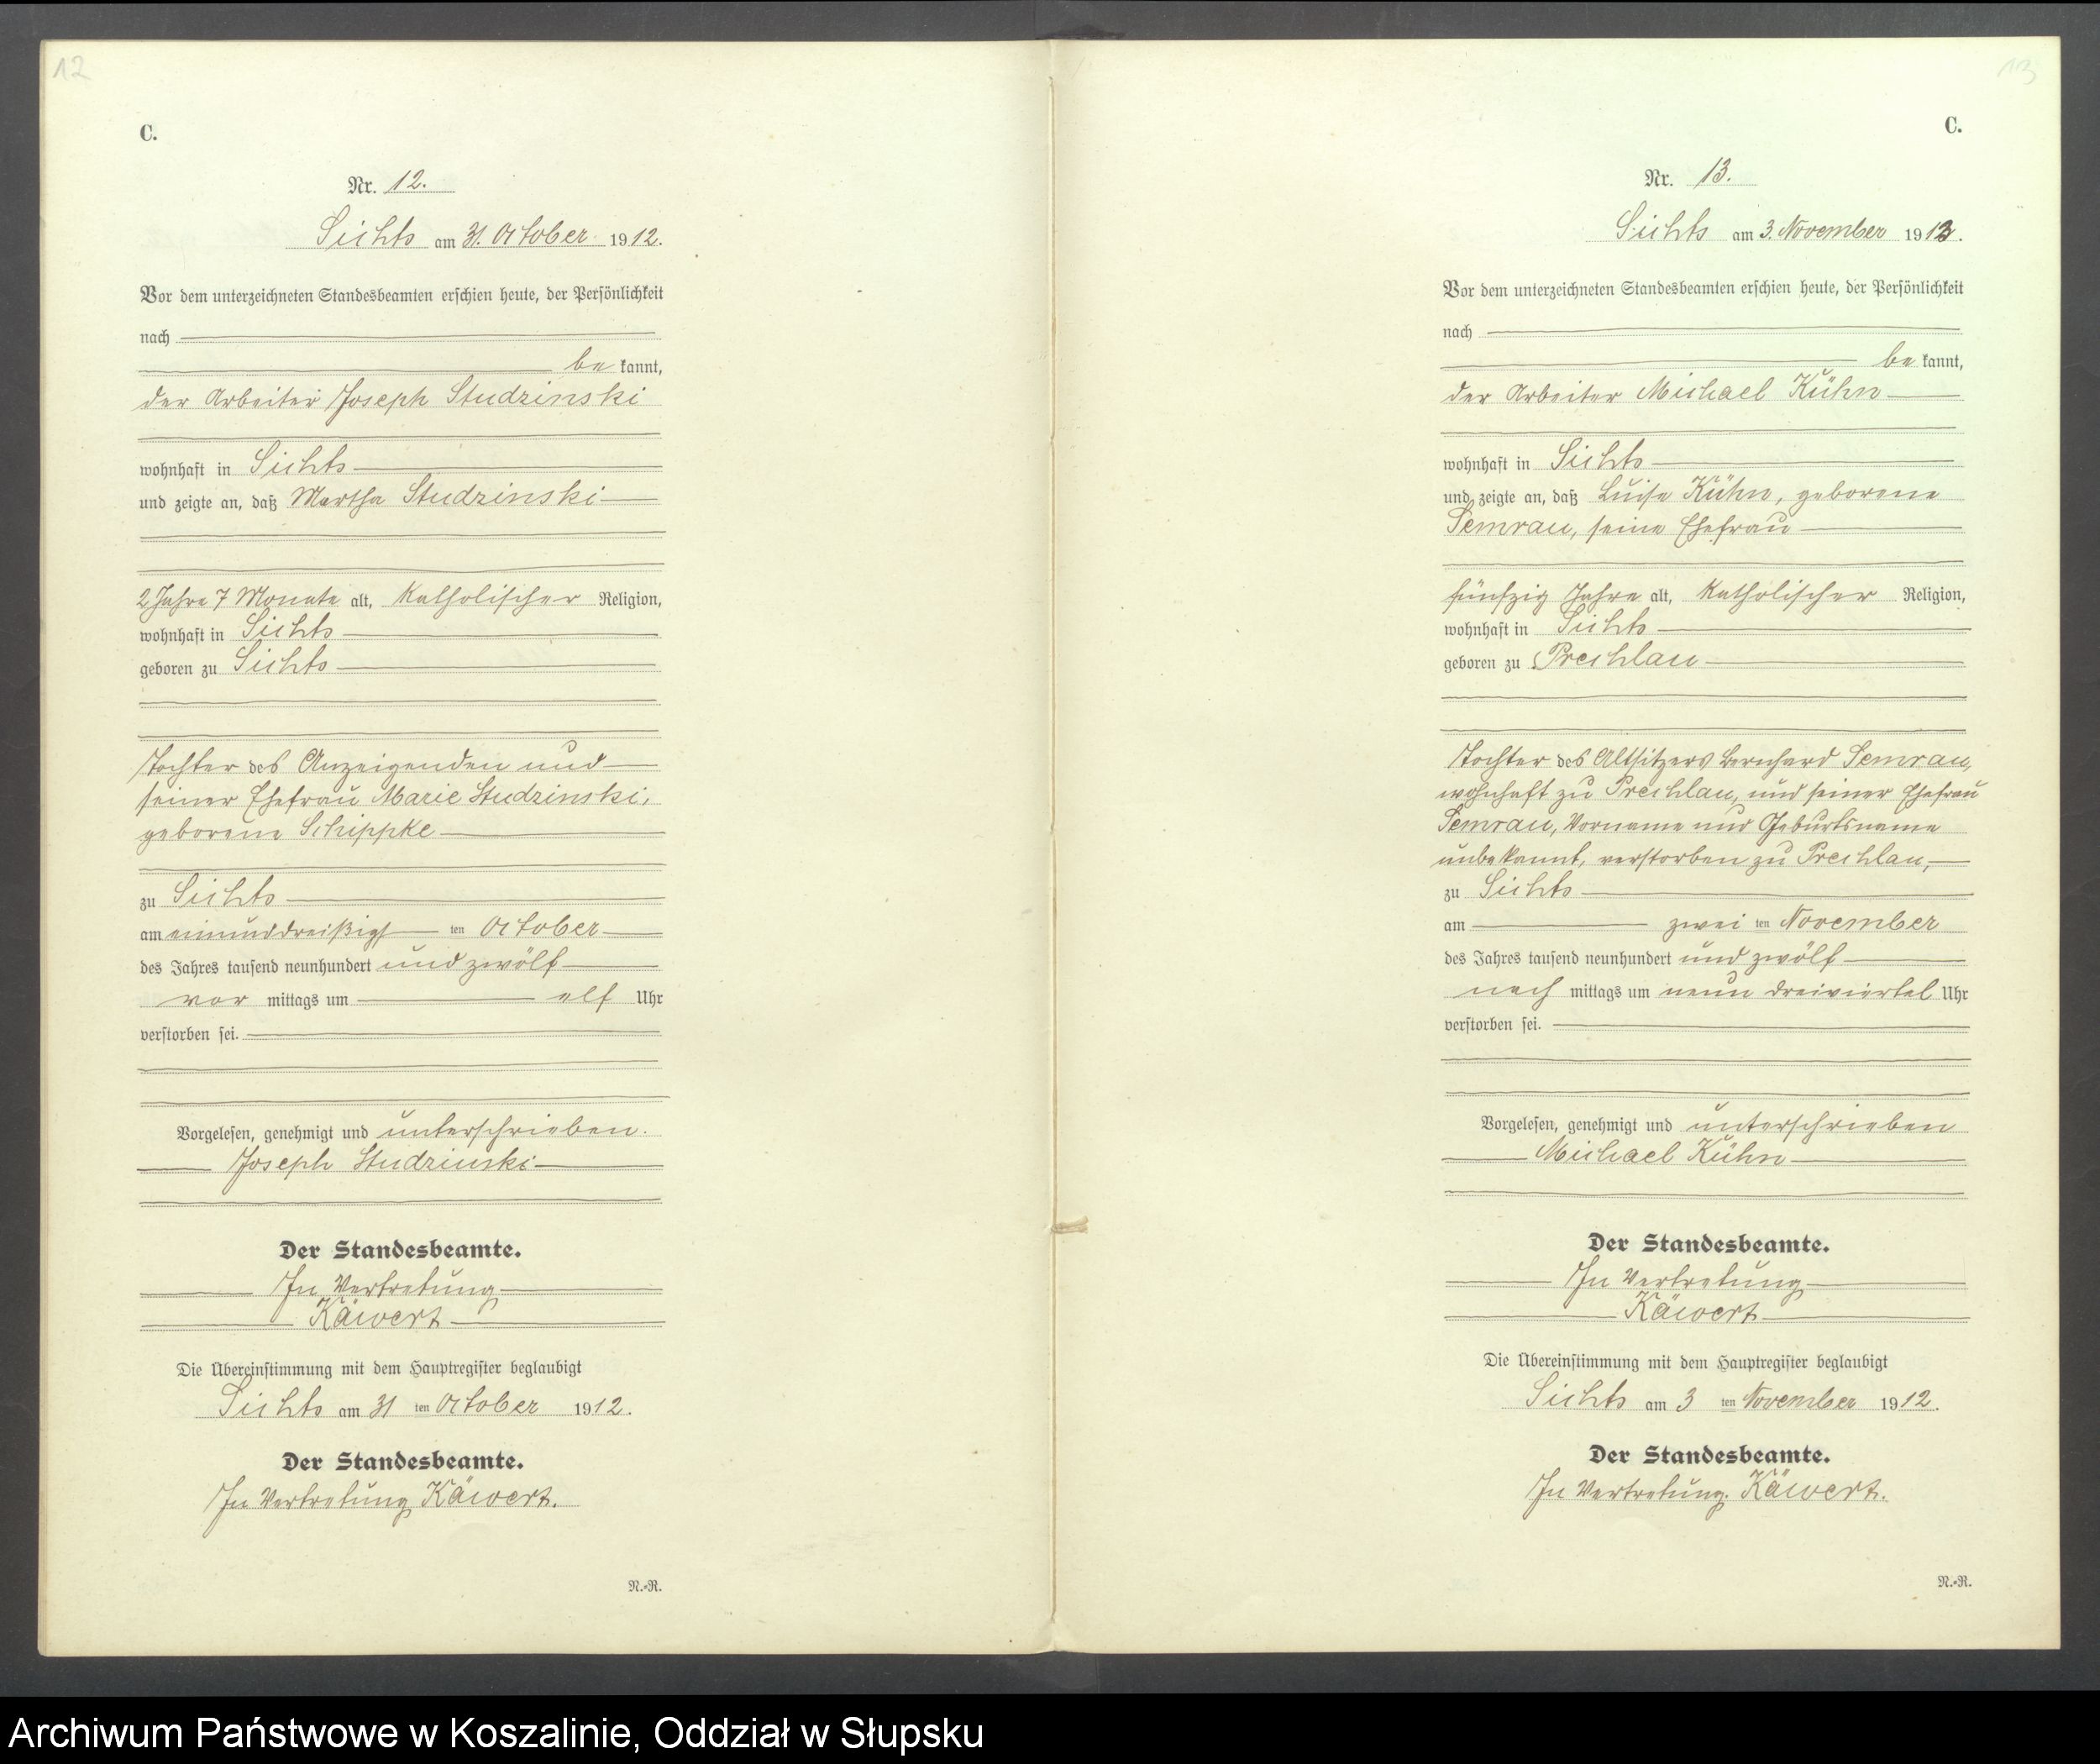 12
C.
Nr. 12.
Sichts am 31. October 1912.
Vor dem unterzeichneten Standesbeamten erschien heute, der Persönlichkeit
nach
be kannt,
der Arbeiter Joseph Studzinski
wohnhaft in Sichts
und zeigte an, daß Martha Studzinski
2 Jahre 7 Monate alt, katholischer Religion,
wohnhaft in Sichts
geboren zu Sichts
Tochter des Anzeigenden und
seiner Ehefrau Marie Studzinski,
geborene Schippke
zu Sichts
am einunddreißigst ten October
des Jahres tausend neunhundert und zwölf
vor mittags um elf Uhr
verstorben sei.
Vorgelesen, genehmigt und unterschrieben.
Joseph Studzinski
Der Standesbeamte.
In Vertretung
Käwert
Die Übereinstimmung mit dem Hauptregister beglaubigt
Sichts am 31 ten October 1912.
Der Standesbeamte.
In Vertretung Käwert.
N.-R.
13
C.
Nr. 13.
Sichts am 3. November 1912.
Vor dem unterzeichneten Standesbeamten erschien heute, der Persönlichkeit
nach
be kannt,
der Arbeiter Michael Kühn
wohnhaft in Sichts
und zeigte an, daß Luise Kühn, geborene
Semrau, seine Ehefrau
fünfzig Jahre alt, katholischer Religion,
wohnhaft in Sichts
geboren zu Prechlau
Tochter des Altsitzers Bernhard Semrau,
wohnhaft zu Prechlau, und seiner Ehefrau
Semrau, Vorname und Geburtsname
unbekannt, verstorben zu Prechlau,
zu Sichts
am zwei ten November
des Jahres tausend neunhundert und zwölf
nach mittags um neun dreiviertel Uhr
verstorben sei.
Vorgelesen, genehmigt und unterschrieben
Michael Kühn
Der Standesbeamte.
In Vertretung
Käwert
Die Übereinstimmung mit dem Hauptregister beglaubigt
Sichts am 3 ten November 1912.
Der Standesbeamte.
In Vertretung. Käwert.
N.-R.
Archiwum Państwowe w Koszalinie, Oddział w Słupsku